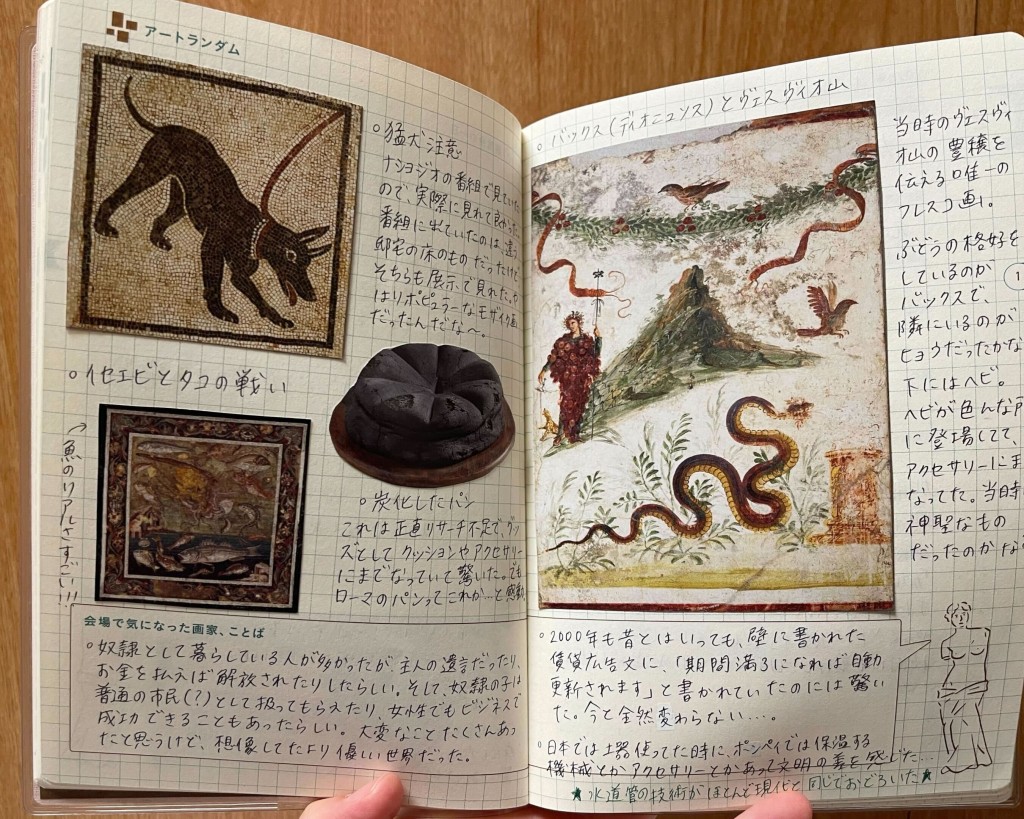 アートランダム
○猛犬注意
ナショジオの番組で見ていた
ので、実際に見れて良かった
番組に出ていたのは違う
邸宅の床のものだったけど
そちらも展示で見れた。
はりポピュラーなモザイク画
だったんだな〜。
○イセエビとタコの戦い
魚のリアルさすごい!!!
○炭化したパン
これは正直リサーチ不足で、グッ
ズとしてクッションやアクセサリー
にまでなっていて驚いた。でも
ローマのパンってこれか…と感動
会場で気になった画家、ことば
○奴隷として暮らしている人が多かったが、主人の遺言だったり、
お金を払えば解放されたりしたらしい。そして、奴隷の子は
普通の市民(?)として扱ってもらえたり、女性でもビジネスで
成功できることもあったらしい。大変なことたくさんあっ
たと思うけど、想像してたより優しい世界だった。
○バックス(ディオニュソス)とヴェスヴィオ山
当時のヴェスヴィ
オ山の豊穣を
伝える唯一の
フレスコ画。
ぶどうの格好を
しているのが
バックスで、
隣にいるのが
ヒョウだったかな
下にはヘビ。
ヘビが色んな所
に登場してて、
アクセサリーにま
なってた。当時
神聖なもの
だったのかな
1
○2000年も昔とはいっても、壁に書かれた
賃貸広告文に、「期間満了になれば自動
更新されます」と書かれていたのには驚い
た。今と全然変わらない…。
○日本では土器使ってた時に、ポンペイでは保温する
機械とかアクセサリーとかあって文明の差を感じた…
★水道管の技術がほとんど現代と同じでおどろいた★